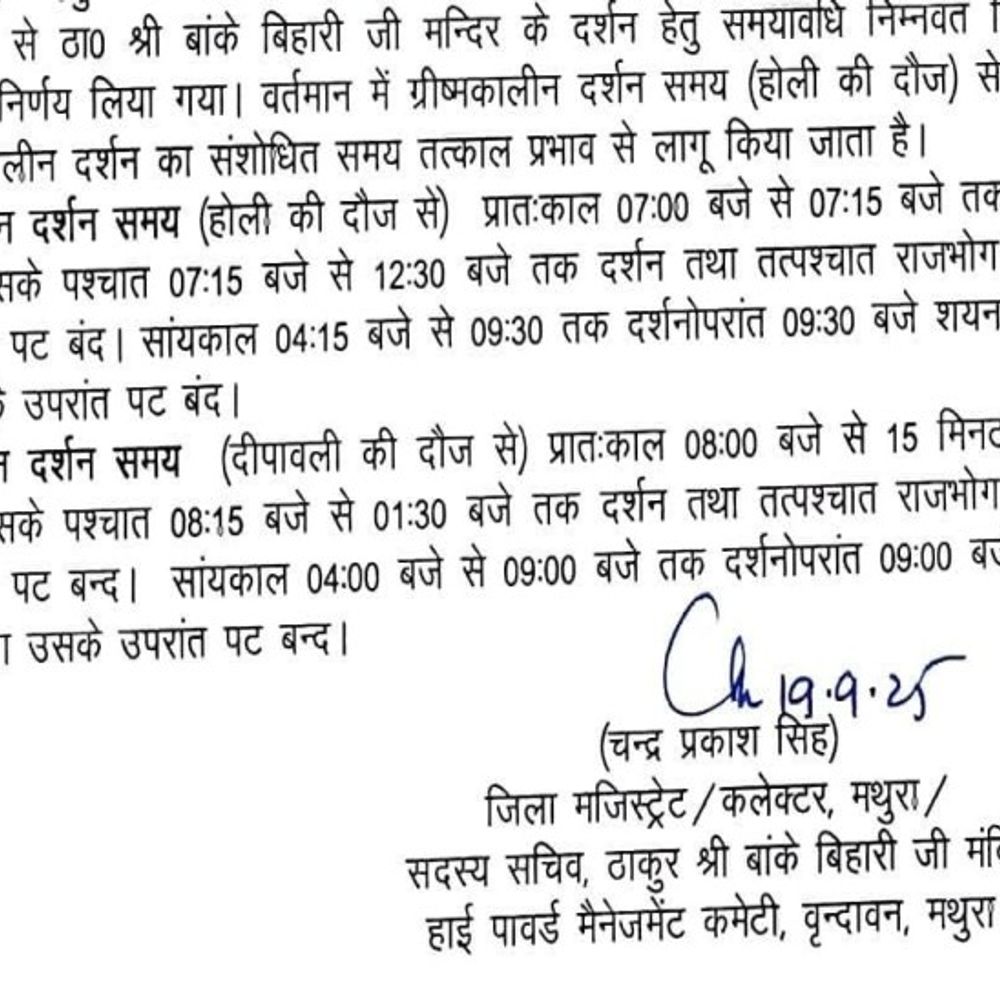 से ठा0 श्री बांके बिहारी जी मन्दिर के दर्शन हेतु समयावधि निम्नवत
निर्णय लिया गया। वर्तमान में ग्रीष्मकालीन दर्शन समय (होली की दौज) से
लीन दर्शन का संशोधित समय तत्काल प्रभाव से लागू किया जाता है।
न दर्शन समय (होली की दौज से) प्रातःकाल 07:00 बजे से 07:15 बजे तक
सके पश्चात 07:15 बजे से 12:30 बजे तक दर्शन तथा तत्पश्चात राजभोग
पट बंद। सांयकाल 04:15 बजे से 09:30 तक दर्शनोपरांत 09:30 बजे शयन
के उपरांत पट बंद।
न दर्शन समय (दीपावली की दौज से) प्रातःकाल 08:00 बजे से 15 मिनट
सके पश्चात 08:15 बजे से 01:30 बजे तक दर्शन तथा तत्पश्चात राजभोग
पट बन्द। सांयकाल 04:00 बजे से 09:00 बजे तक दर्शनोपरांत 09:00 बजे
उसके उपरांत पट बन्द।
19.9.25
(चन्द्र प्रकाश सिंह)
जिला मजिस्ट्रेट/कलेक्टर, मथुरा/
सदस्य सचिव, ठाकुर श्री बांके बिहारी जी मंदि
हाई पावर्ड मैनेजमेंट कमेटी, वृन्दावन, मथुरा